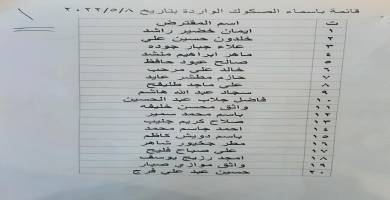 قائمة باسماء الصكوك الواردة بتاريخ ٢٠٢٢/٥/٨
ت اسم المقترض
١ ايمان خضير راشد
٢ خلدون حسين علي
٣ علاء جبار جوده
٤ ماهر ابراهيم منشد
٥ صالح عبود حافظ
٦ خالد علي مرحب
٧ حازم مطشر عايد
٨ علي ماجد طليفح
٩ سجاد عبد الله هاشم
١٠ فاضل جلاب عبد الحسين
١١ واثق محسن خليفه
١٢ باسم محمد سمير
١٣ صلاح كريم جليب
١٤ احمد جاسم محمد
١٥ باسم درويش كاظم
١٦ مطر جخيور شاهر
١٧ علي صباح فليح
١٨ امجد رزيج يوسف
١٩ واثق موازي صبار
٢٠ حسين عبد علي فرج